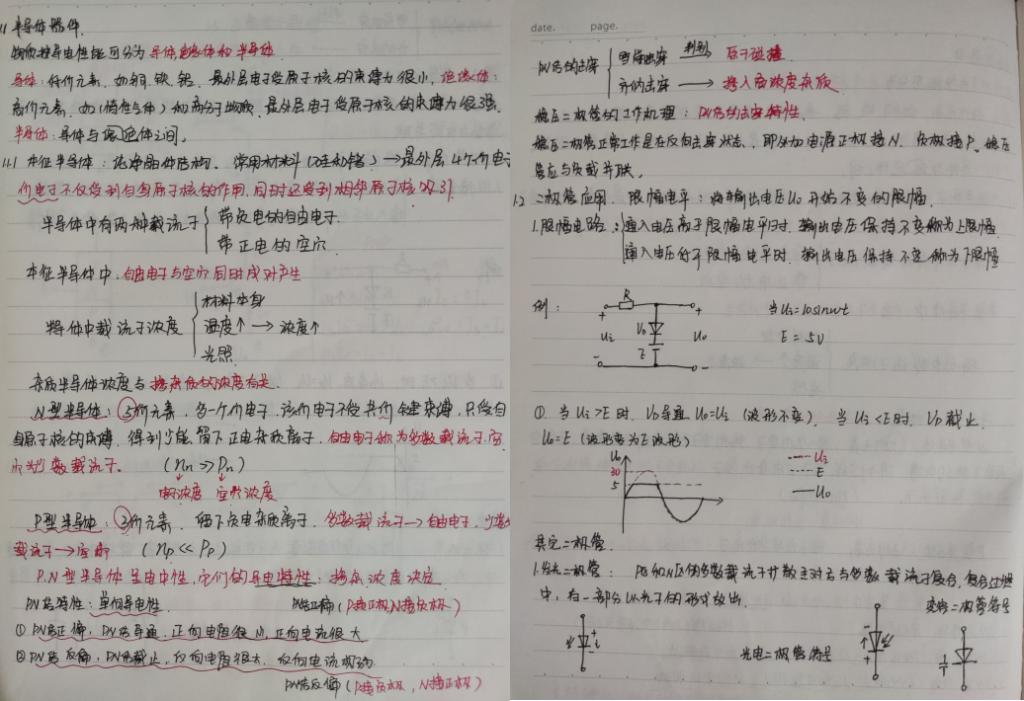 1.1 半导体器件.
物质按导电性能可分为导体,绝缘体和半导体
导体:低价元素,如铜、铁、铝、最外层电子受原子核的束缚力很小,绝缘体:
高价元素,如(惰性气体)和高分子物质,最外层电子受原子核的束缚力很强.
半导体:导体与绝缘体之间。
1.1.1 本征半导体:纯净晶体结构. 常用材料(硅和锗)→最外层4个价电子
价电子不仅受到自身原子核的作用,同时还受到相邻原子核吸引
半导体中有两种载流子
带负电的自由电子.
带正电的空穴
本征半导体中,自由电子与空穴同时成对产生
导体中载流子浓度
材料本身
温度↑→浓度↑
光照
杂质半导体浓度与掺杂质的浓度有关.
N型半导体:5价元素,多一个价电子,该价电子不受共价键束缚,只受自
身原子核的束缚,得到少能,留下正电杂质离子,自由电子称为多数载流子,空
穴为少数载流子. (nn >> Pn)
电子浓度 空穴浓度
P型半导体:3价元素,留下负电杂质离子,多数载流子→自由电子,少数
载流子→空穴 (np << Pp)
P.N型半导体呈电中性,它们的导电特性:掺杂浓度决定
PN结特性:单向导电性. PN结正偏(P接正极,N接负极)
① PN结正偏,PN结导通,正向电阻很小,正向电流很大
② PN结反偏,PN结截止,反向电阻很大,反向电流极弱
PN结反偏(P接负极,N接正极)
date. page.
PN结的击穿
雪崩击穿 判别→ 原子碰撞
齐纳击穿→掺入高浓度杂质
稳压二极管的工作机理:PN结的击穿特性.
稳压二极管正常工作是在反向击穿状态,即外加电源正极接N,负极接P,稳压
管应与负载并联.
1.2 二极管应用. 限幅电平:将输出电压Uo开始不变的限幅.
1.限幅电路:
输入电压高于限幅电平时,输出电压保持不变称为上限幅
输入电压低于限幅电平时,输出电压保持不变称为下限幅
例: R 当Ui=10sinωt
+ + Ui VD Uo E = 5V
E
- -
①. 当Ui>E时,VD导通Uo=Ui(波形不变), 当Ui<E时,VD截止,
Uo=E(波形变为E波形)
Uo
30
5
Ui
E
Uo
其它二极管.
1.发光二极管: P区和N区的多数载流子扩散至对方与多数载流子复合,复合过程
中,有一部分以光子的形式放出. 变容二极管符号
+ i -
光电二极管符号
+ -